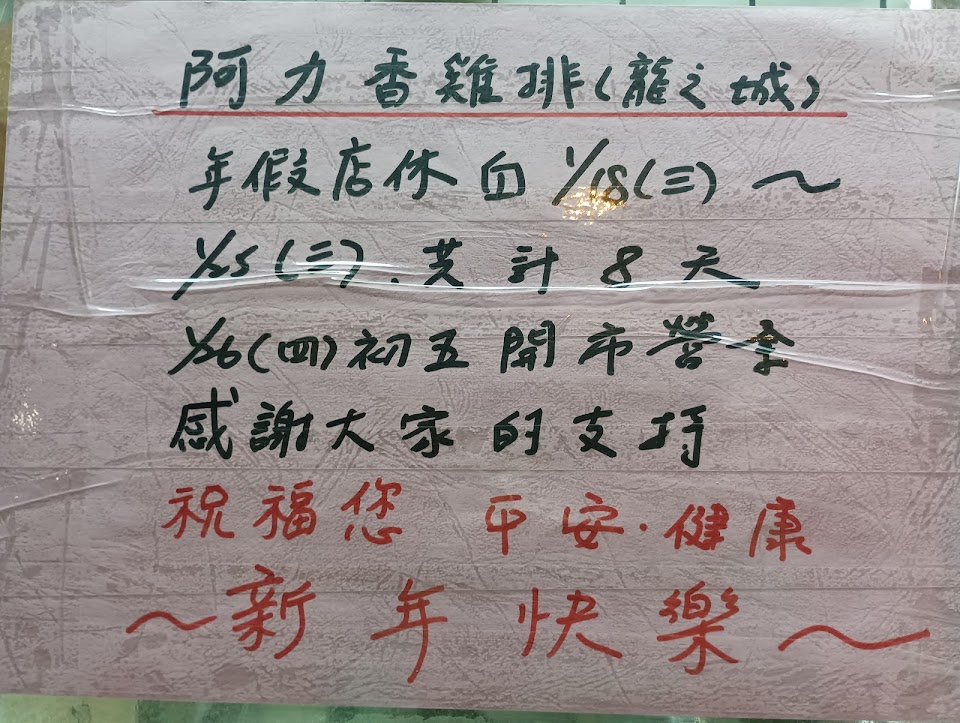 阿力香雞排(龍之城)
年假店休自1/18(三)～
1/25(三).共計8天
1/26(四)初五開市營業
感謝大家的支持
祝福您 平安.健康
～新年快樂～